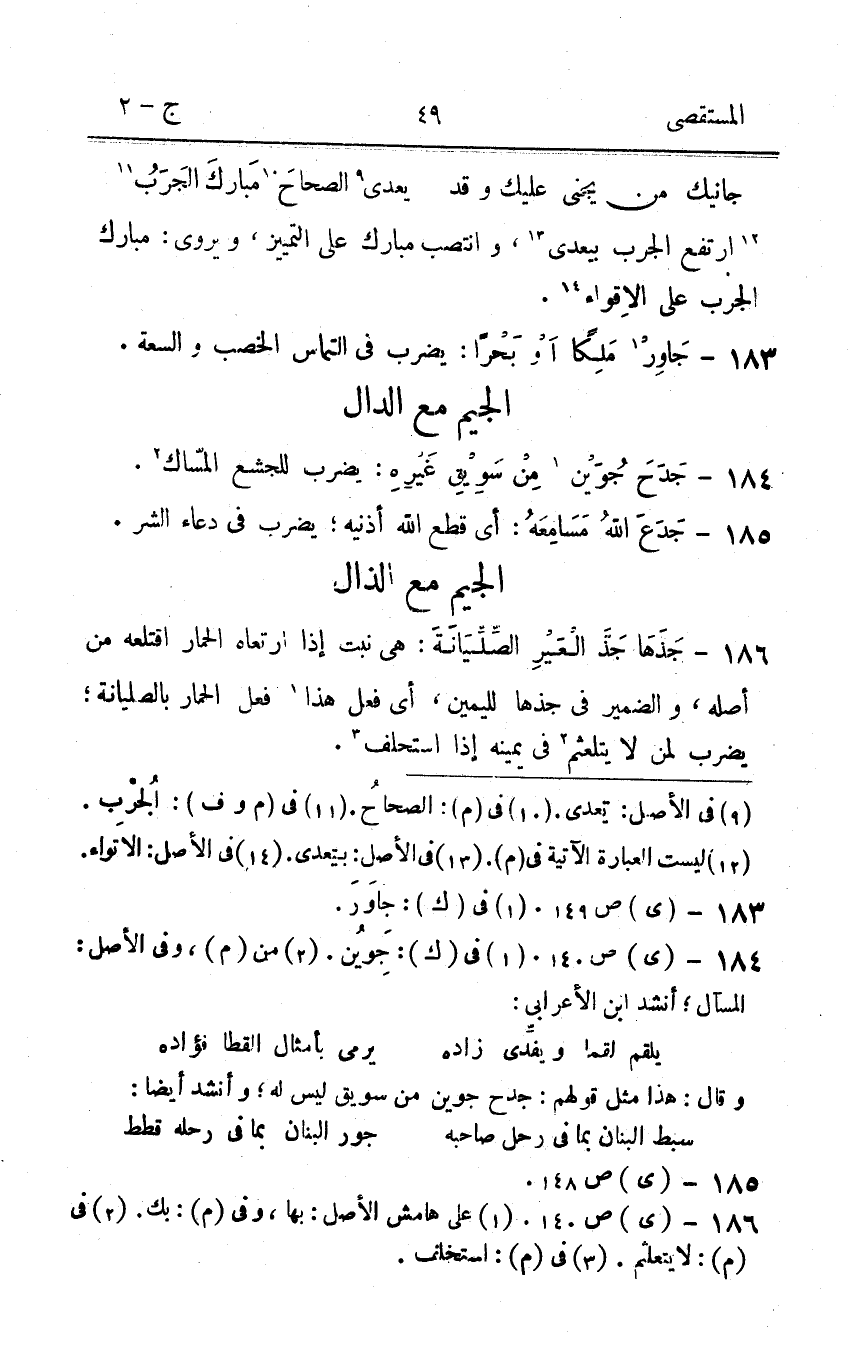 المستقصى ٤٩ ج – ٢
جانيك من يجنى عليك و قد يعدى٩ الصحاحَ١٠ مَبارِكَ الجَرَبُ١١
١٢ ارتفع الجرب بيعدى١٣ ، و انتصب مبارك على التمييز ، و يروى : مبارك
الجرب على الإقواء١٤ .
١٨٣ – جَاوِرْ١ مَلِكًا اَوْ بَحْرًا : يضرب فى التماس الخصب و السعة .
الجيم مع الدال
١٨٤ – جَدَحَ جُوَيْن١ مِنْ سَوِيْقِ غَيْرِهِ : يضرب للجشع المسّاك٢ .
١٨٥ – جَدَعَ اللّٰهُ مَسَامِعَهُ : أى قطع اللّٰه أذنيه ؛ يضرب فى دعاء الشر .
الجيم مع الذال
١٨٦ – جَذَهَا جَذَّ الْعَيْرِ الصِّلِّيَانَةَ : هى نبت إذا ارتعاه الحمار اقتلعه من
أصله ، و الضمير فى جذها لليمين ، أى فعل هذا١ فعل الحمار بالصليانة ؛
يضرب لمن لا يتلعثم٢ فى يمينه إذا استحلف٣ .
(٩) فى الأصل : تعدى . (١٠) فى (م) : الصحاحُ . (١١) فى (م و ف) : الجُرْبِ .
(١٢) ليست العبارة الآتية فى (م) . (١٣) فى الأصل : بتعدى . (١٤) فى الأصل : الاتواء .
١٨٣ – (ى) ص ١٤٩ . (١) فى (ك) : جاوَرَ .
١٨٤ – (ى) ص ١٤٠ . (١) فى (ك) : جَوِيُن . (٢) من (م) ، وفى الأصل :
المسآل ؛ أنشد ابن الأعرابى :
يلقم لقما و يفدّى زاده يرمى بأمثال القطا فؤاده
و قال : هذا مثل قولهم : جدح جوين من سويق ليس له ؛ و أنشد أيضا :
سبط البنان بما فى رحل صاحبه جور البنان بما فى رحله قطط
١٨٥ – (ى) ص ١٤٨ .
١٨٦ – (ى) ص ١٤٠ . (١) على هامش الأصل : بها ، وفى (م) : بك . (٢) فى
(م) : لا يتعلثم . (٣) فى (م) : استخلف .